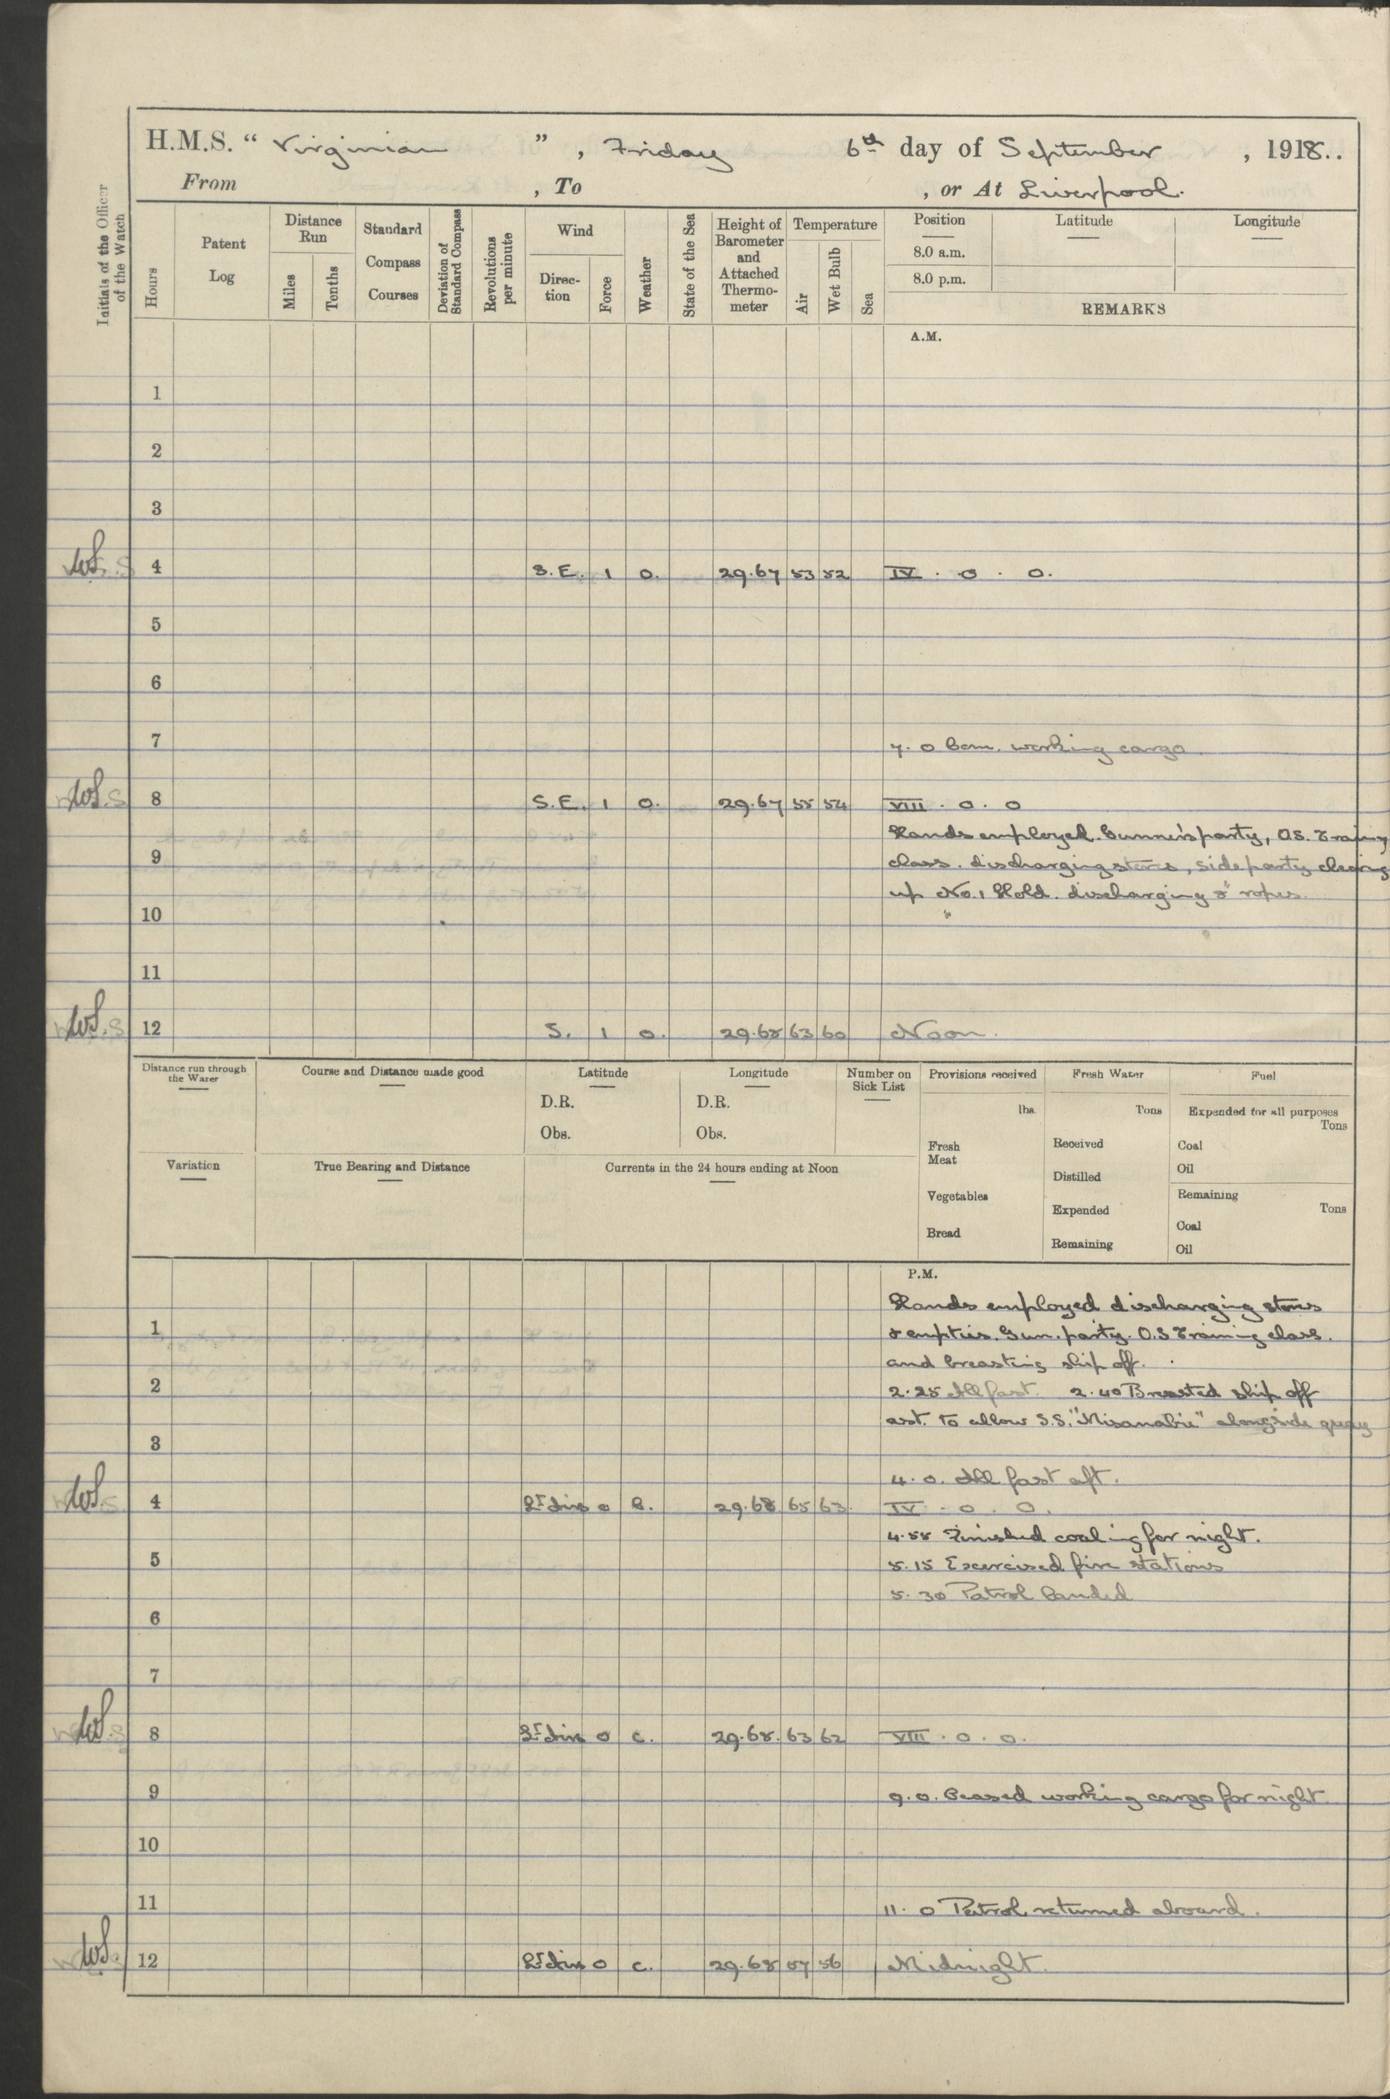 H.M.S. “ Virginian ” , Friday 6th day of September , 1918..
From , To , or At Liverpool.
Initials of the Officer of the Watch
Hours
Patent Log
Distance Run
Miles
Tenths
Standard Compass Courses
Deviation of Standard Compass
Revolutions per minute
Wind
Direc-tion
Force
Weather
State of the Sea
Height of Barometer and Attached Thermo-meter
Temperature
Air
Wet Bulb
Sea
Position
Latitude
Longitude
8.0 a.m.
8.0 p.m.
REMARKS
A.M.
1
2
3
WS 4 S.E. 1 o. 29.67 53 52 IV . o . o.
5
6
7 7. 0 Com. working cargo.
WS 8 S.E. 1 o. 29.67 55 54 VIII . o . o
Hands employed. Gunner's party, O.S. Training
9 class. discharging stores, side party clearing
up No. 1 Hold. discharging 8" ropes.
10
11
WS 12 S. 1 o. 29.68 63 60 Noon.
Distance run through the Water
Course and Distance made good
Latitude
D.R.
Obs.
Longitude
D.R.
Obs.
Number on Sick List
Provisions received
lbs.
Fresh Meat
Vegetables
Bread
Fresh Water
Tons
Received
Distilled
Expended
Remaining
Fuel
Expended for all purposes
Tons
Coal
Oil
Remaining
Tons
Coal
Oil
Variation
True Bearing and Distance
Currents in the 24 hours ending at Noon
P.M.
Hands employed discharging stores
1 & empties. Gun. party. O.S Training class.
and breasting ship off.
2 2.25 All fast. 2.40 Breasted ship off
ast. to allow S.S. "Missanabie" alongside quay
3
4. 0. All fast aft.
WS 4 Lt airs o B. 29.68 65 63 IV . o . o.
4.55 Finished coaling for night.
5 5.15 Exercised fire stations
5.30 Patrol landed
6
7
WS 8 Lt airs o c. 29.68. 63 62 VIII . o . o.
9 9. 0. Ceased working cargo for night.
10
11 11. 0 Patrol returned aboard.
WS 12 Lt airs o c. 29.68 57 56 Midnight.